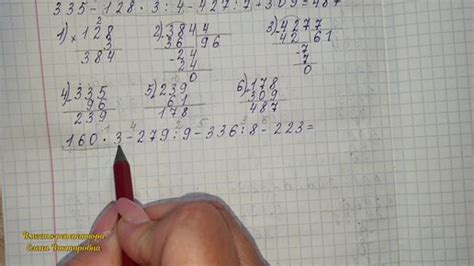 335 - 128 · 3 : 4 - 427 : 7 + 309 = 487
1) × 128 2) 384 4 3) 427 7
3 36 96 42 61
384 - 24 - 7
24 7
0 0
4) - 335 5) - 239 6) + 178
96 61 309
239 178 487
160 · 3 - 279 : 9 - 336 : 8 - 223 =
репетитора
Елена Викторовна